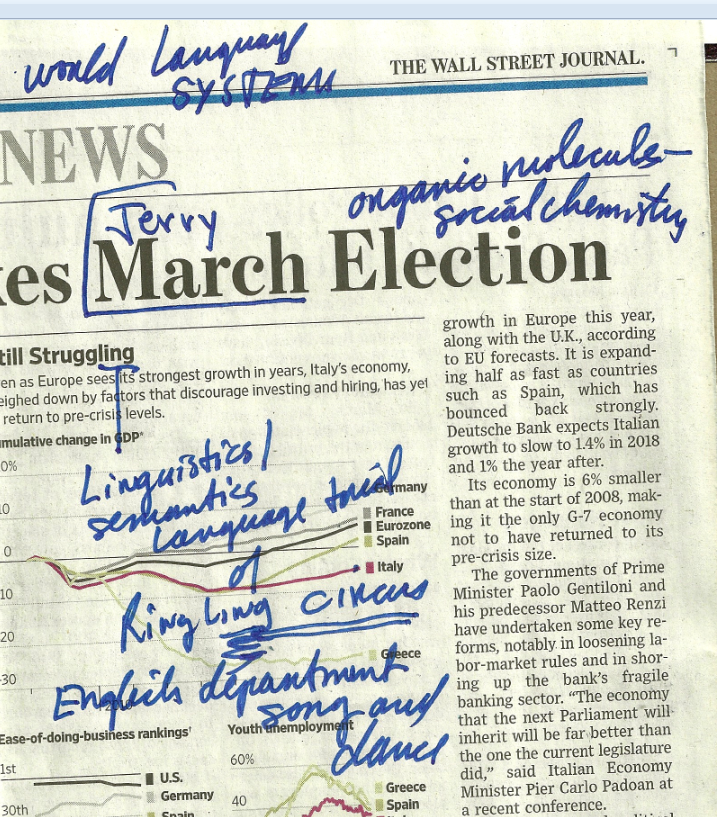 world Language
SYSTEMS
THE WALL STREET JOURNAL.
NEWS
organic molecule-
social chemistry
Jerry
kes March Election
till Struggling
en as Europe sees its strongest growth in years, Italy's economy,
eighed down by factors that discourage investing and hiring, has yet
return to pre-crisis levels.
umulative change in GDP*
0%
10
0
10
20
30
Germany
France
Eurozone
Spain
Italy
Greece
Linguistics/
semantics
Language
of
RingLing circus
English department
song and
dance
Ease-of-doing-business rankings†
1st
30th
U.S.
Germany
Spain
Youth unemployment
60%
40
Greece
Spain
growth in Europe this year,
along with the U.K., according
to EU forecasts. It is expand-
ing half as fast as countries
such as Spain, which has
bounced back strongly.
Deutsche Bank expects Italian
growth to slow to 1.4% in 2018
and 1% the year after.
Its economy is 6% smaller
than at the start of 2008, mak-
ing it the only G-7 economy
not to have returned to its
pre-crisis size.
The governments of Prime
Minister Paolo Gentiloni and
his predecessor Matteo Renzi
have undertaken some key re-
forms, notably in loosening la-
bor-market rules and in shor-
ing up the bank's fragile
banking sector. “The economy
that the next Parliament will
inherit will be far better than
the one the current legislature
did,” said Italian Economy
Minister Pier Carlo Padoan at
a recent conference.